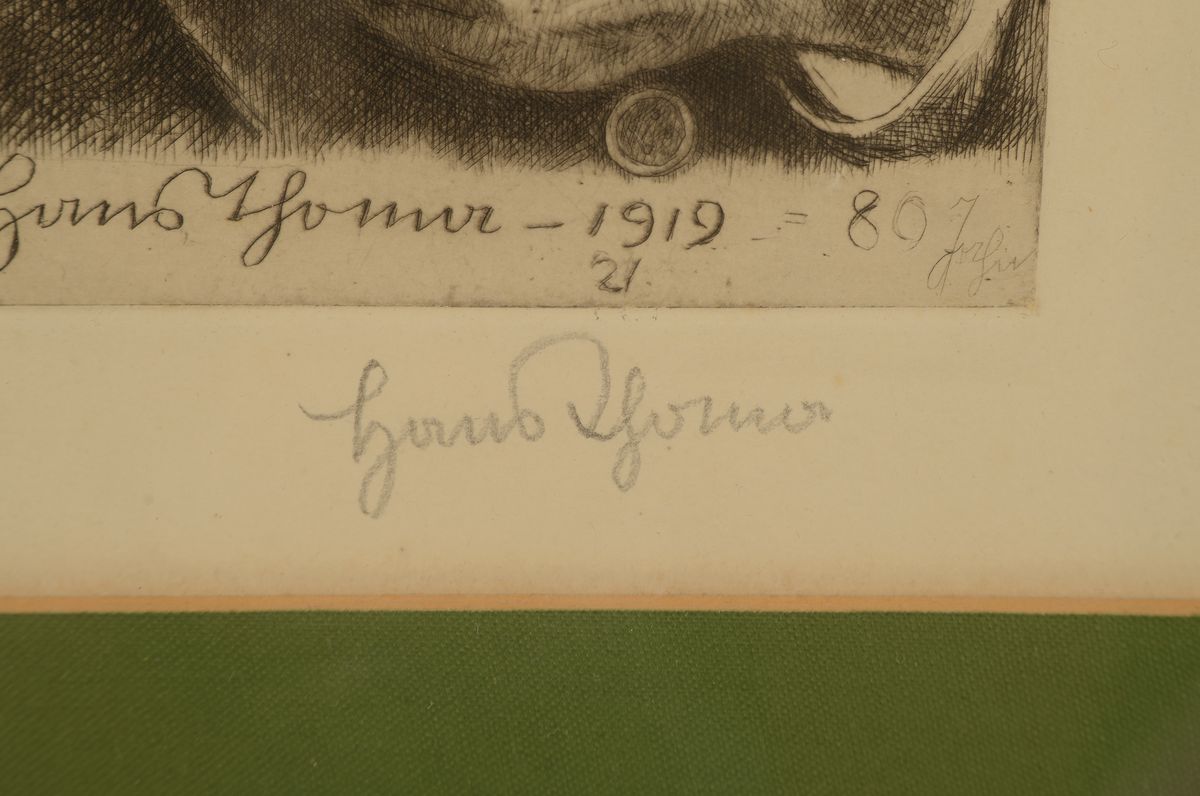 Hans Thoma – 1919 = 80 J
21
Hans Thoma